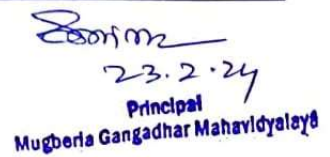 23.2.24
Principal
Mugberia Gangadhar Mahavidyalaya